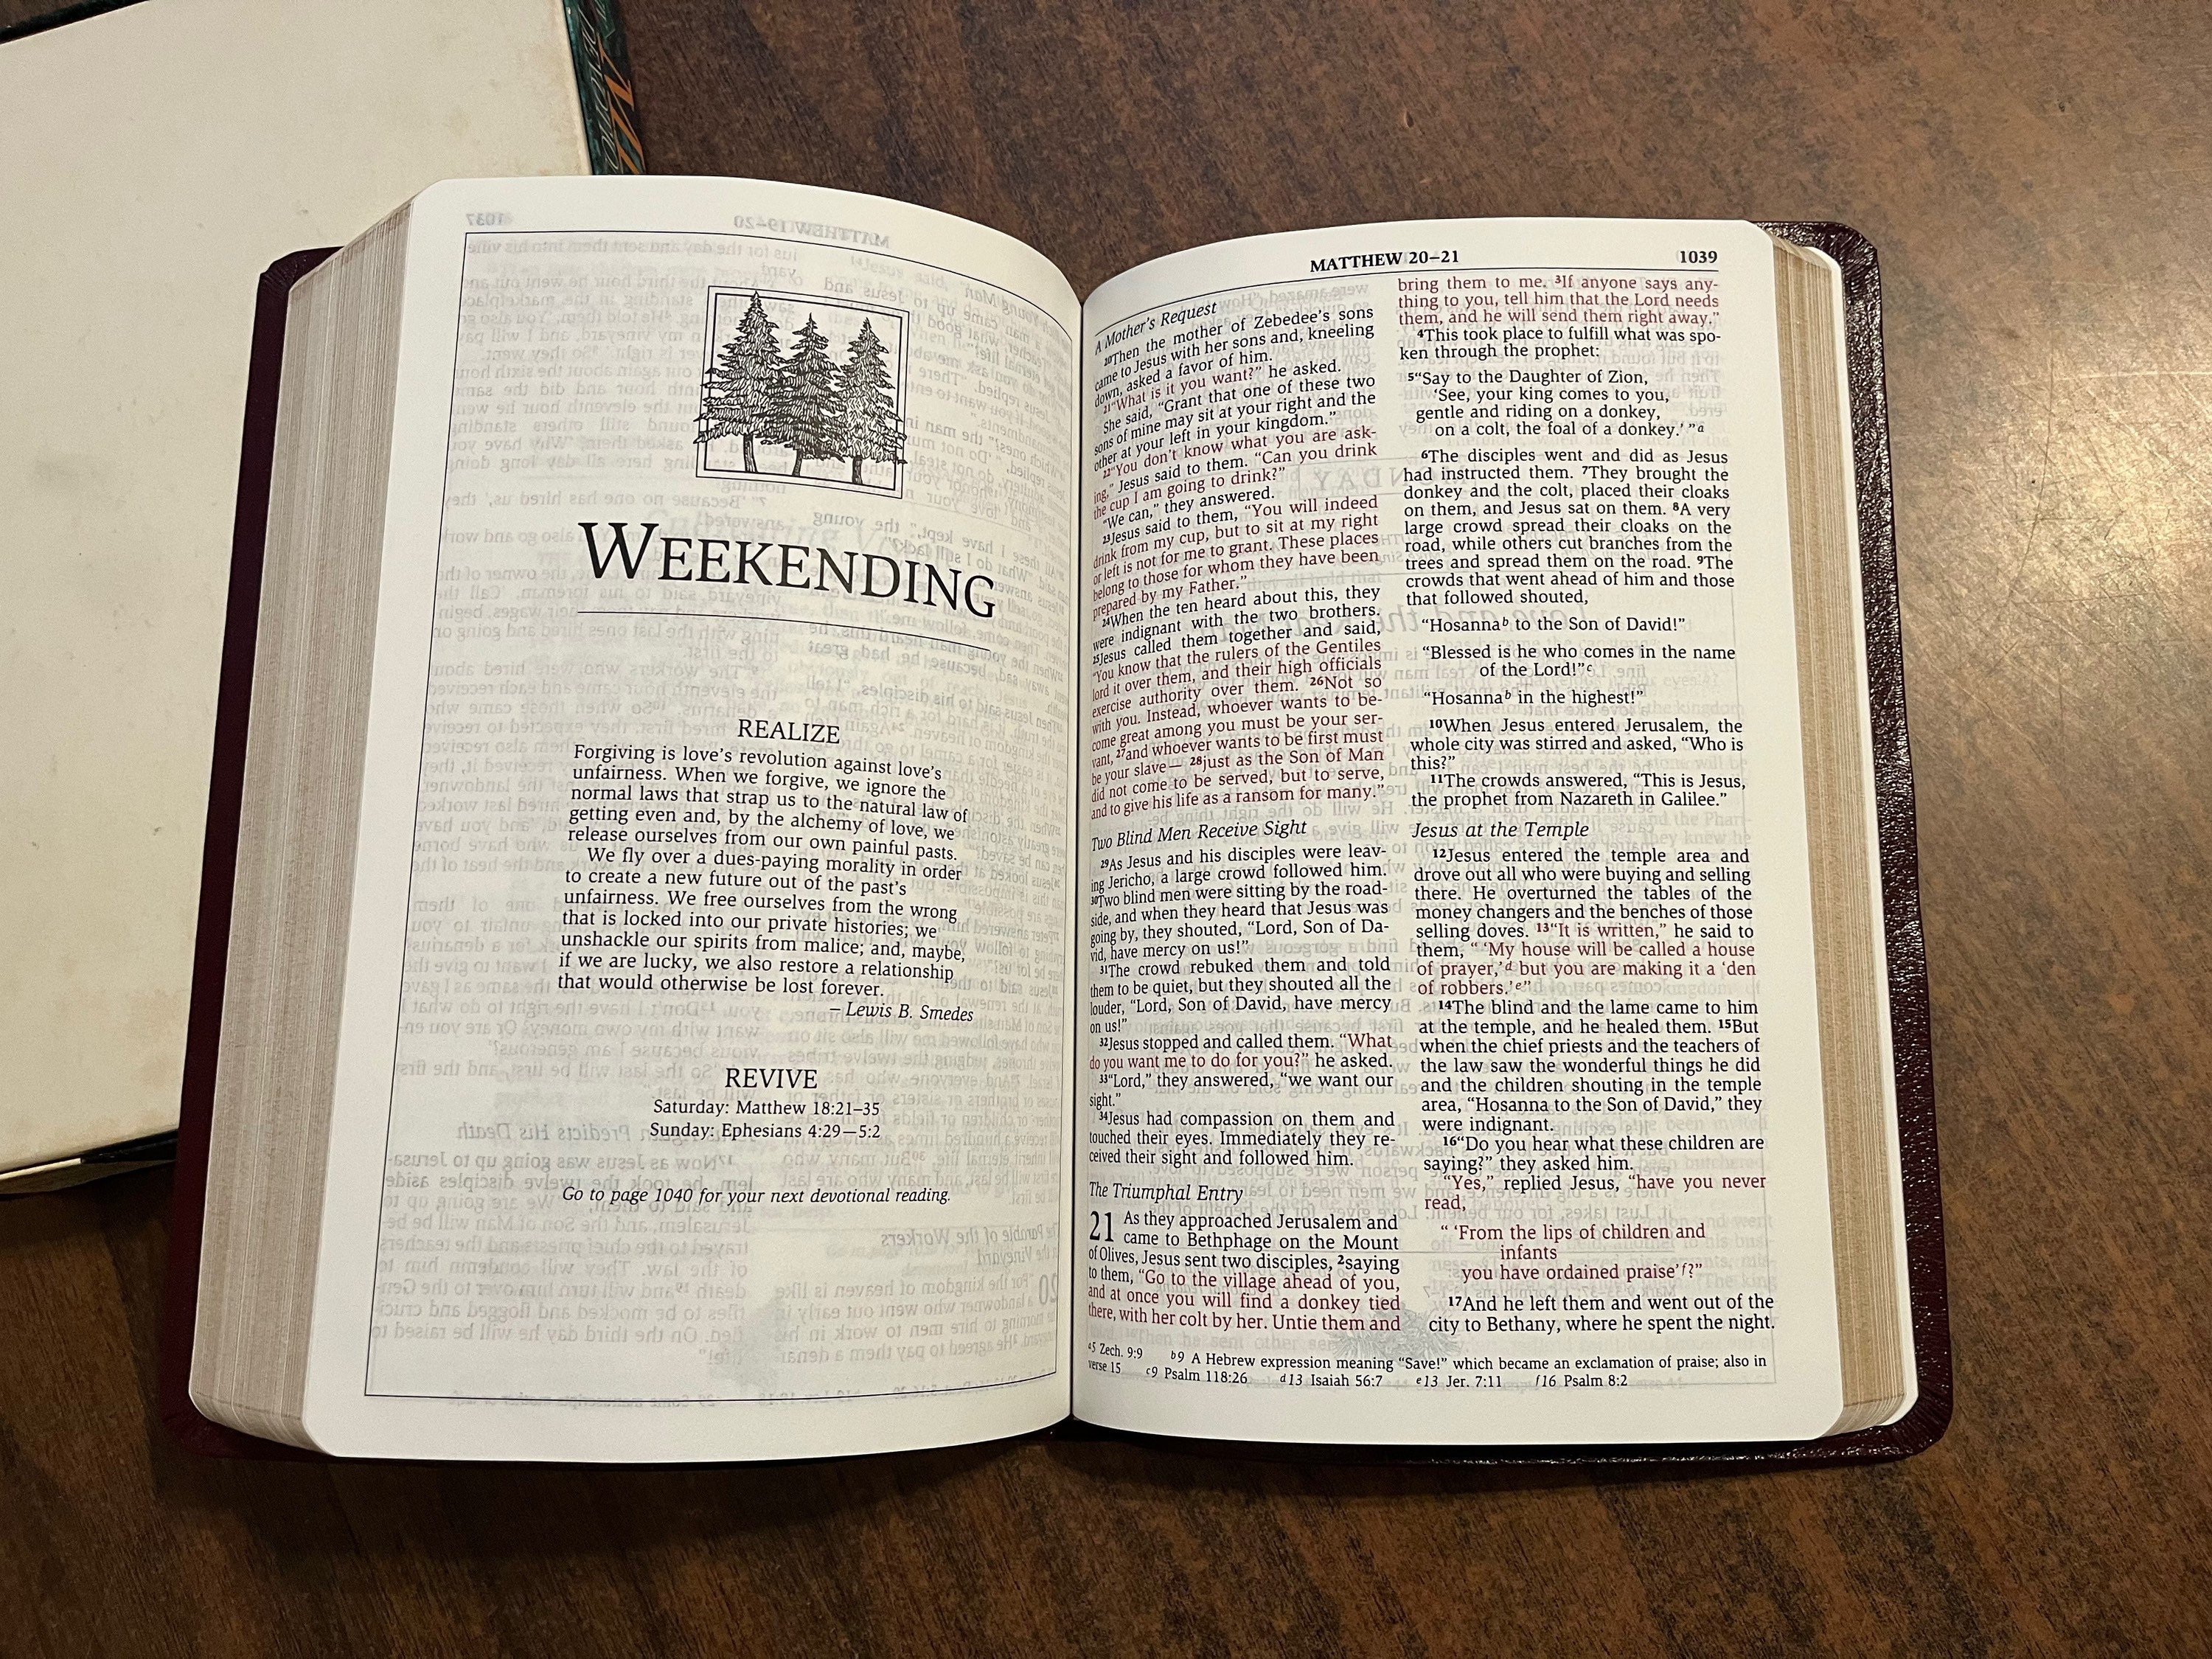 WEEKENDING
REALIZE
Forgiving is love's revolution against love's
unfairness. When we forgive, we ignore the
normal laws that strap us to the natural law of
getting even and, by the alchemy of love, we
release ourselves from our own painful pasts.
We fly over a dues-paying morality in order
to create a new future out of the past's
unfairness. We free ourselves from the wrong
that is locked into our private histories; we
unshackle our spirits from malice; and, maybe,
if we are lucky, we also restore a relationship
that would otherwise be lost forever.
– Lewis B. Smedes
REVIVE
Saturday: Matthew 18:21–35
Sunday: Ephesians 4:29—5:2
Go to page 1040 for your next devotional reading.
MATTHEW 20–21
1039
A Mother's Request
20Then the mother of Zebedee's sons
came to Jesus with her sons and, kneeling
down, asked a favor of him.
21"What is it you want?" he asked.
She said, "Grant that one of these two
sons of mine may sit at your right and the
other at your left in your kingdom."
22"You don't know what you are ask-
ing," Jesus said to them. "Can you drink
the cup I am going to drink?"
"We can," they answered.
23Jesus said to them, "You will indeed
drink from my cup, but to sit at my right
or left is not for me to grant. These places
belong to those for whom they have been
prepared by my Father."
24When the ten heard about this, they
were indignant with the two brothers.
25Jesus called them together and said,
"You know that the rulers of the Gentiles
lord it over them, and their high officials
exercise authority over them. 26Not so
with you. Instead, whoever wants to be-
come great among you must be your ser-
vant, 27and whoever wants to be first must
be your slave— 28just as the Son of Man
did not come to be served, but to serve,
and to give his life as a ransom for many."
Two Blind Men Receive Sight
29As Jesus and his disciples were leav-
ing Jericho, a large crowd followed him.
30Two blind men were sitting by the road-
side, and when they heard that Jesus was
going by, they shouted, "Lord, Son of Da-
vid, have mercy on us!"
31The crowd rebuked them and told
them to be quiet, but they shouted all the
louder, "Lord, Son of David, have mercy
on us!"
32Jesus stopped and called them. "What
do you want me to do for you?" he asked.
33"Lord," they answered, "we want our
sight."
34Jesus had compassion on them and
touched their eyes. Immediately they re-
ceived their sight and followed him.
The Triumphal Entry
21 As they approached Jerusalem and
came to Bethphage on the Mount
of Olives, Jesus sent two disciples, 2saying
to them, "Go to the village ahead of you,
and at once you will find a donkey tied
there, with her colt by her. Untie them and
bring them to me. 3If anyone says any-
thing to you, tell him that the Lord needs
them, and he will send them right away."
4This took place to fulfill what was spo-
ken through the prophet:
5"Say to the Daughter of Zion,
'See, your king comes to you,
gentle and riding on a donkey,
on a colt, the foal of a donkey.' "a
6The disciples went and did as Jesus
had instructed them. 7They brought the
donkey and the colt, placed their cloaks
on them, and Jesus sat on them. 8A very
large crowd spread their cloaks on the
road, while others cut branches from the
trees and spread them on the road. 9The
crowds that went ahead of him and those
that followed shouted,
"Hosannab to the Son of David!"
"Blessed is he who comes in the name
of the Lord!"c
"Hosannab in the highest!"
10When Jesus entered Jerusalem, the
whole city was stirred and asked, "Who is
this?"
11The crowds answered, "This is Jesus,
the prophet from Nazareth in Galilee."
Jesus at the Temple
12Jesus entered the temple area and
drove out all who were buying and selling
there. He overturned the tables of the
money changers and the benches of those
selling doves. 13"It is written," he said to
them, " 'My house will be called a house
of prayer,'d but you are making it a 'den
of robbers.'e"
14The blind and the lame came to him
at the temple, and he healed them. 15But
when the chief priests and the teachers of
the law saw the wonderful things he did
and the children shouting in the temple
area, "Hosanna to the Son of David," they
were indignant.
16"Do you hear what these children are
saying?" they asked him.
"Yes," replied Jesus, "have you never
read,
" 'From the lips of children and
infants
you have ordained praise'f?"
17And he left them and went out of the
city to Bethany, where he spent the night.
a5 Zech. 9:9 b9 A Hebrew expression meaning "Save!" which became an exclamation of praise; also in
verse 15 c9 Psalm 118:26 d13 Isaiah 56:7 e13 Jer. 7:11 f16 Psalm 8:2